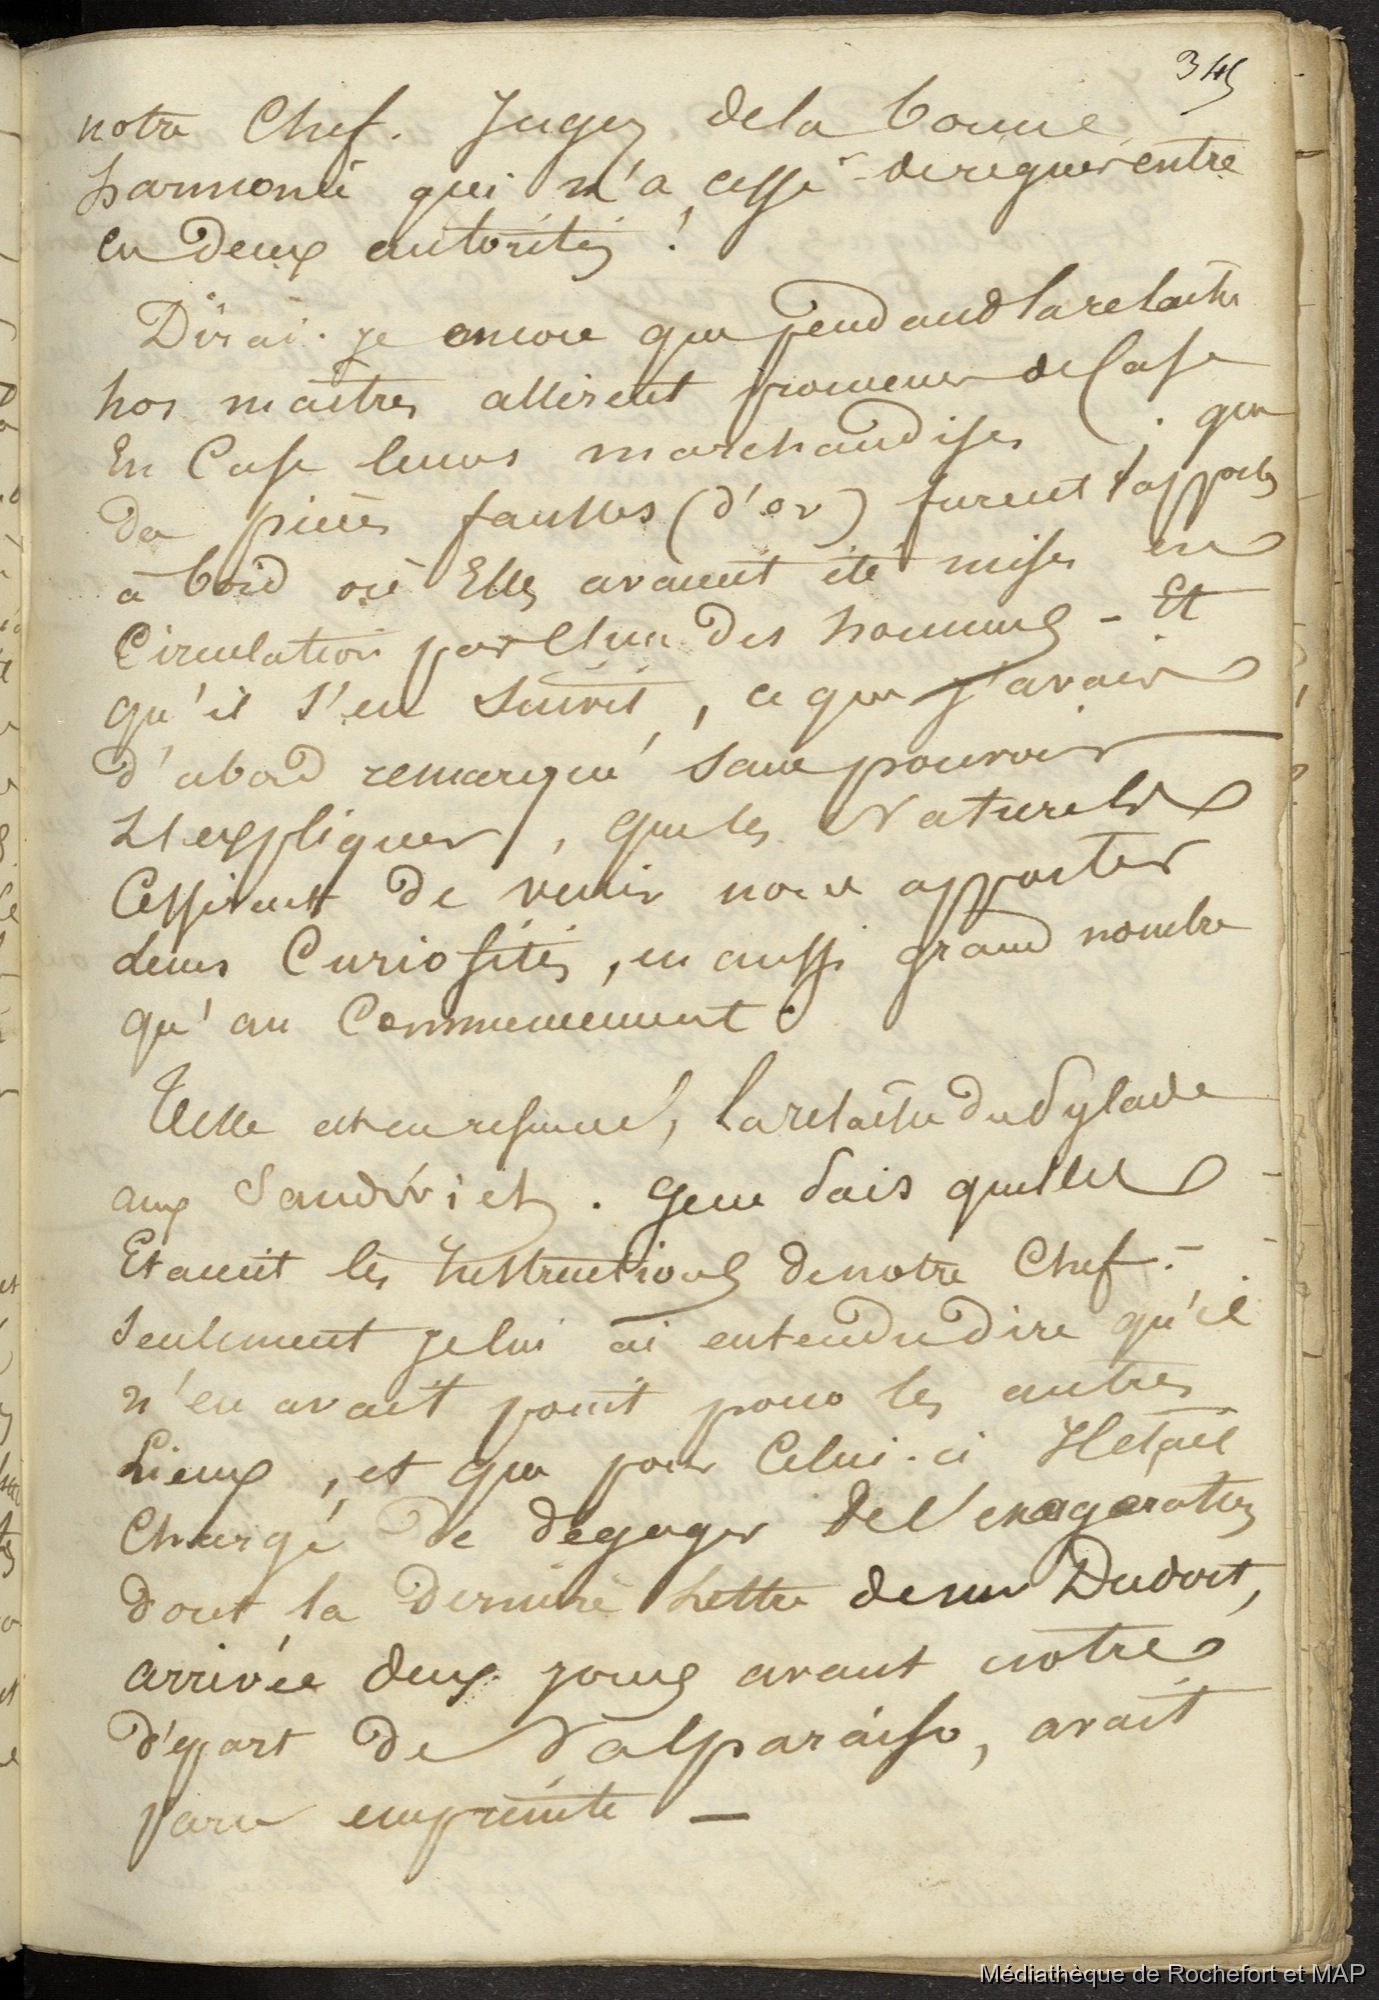 345
notre Chef. Jugez de la bonne
harmonie qui n'a cessé de regner entre
ces deux autorités !
Dirai-je encore que pendand la relache
nos maitres allèrent promener de Case
En Case leurs marchandises ; que
des pieces fausses (d'or) furent rapportes
à bord où Elles avaient été mises en
Circulation par l'un des hommes - Et
qu'il s'en suivit, ce que j'avais
d'abord remarqué sans pouvoir
L'expliquer, que les Naturels
Cesserent de venir nous apporter
leurs Curiosités, en aussi grand nombre
qu'au Commencement.
Telle est en resumé, la relache du Pylade
aux Sandwiet. Je ne sais quelles
Etaient les Instructions de notre Chef -
Seulement je lui ai entendu dire qu'il
n'en avait point pour les autres
Lieux, et que pour Celui-ci Il etait
Chargé de degager de l'exageration
dont la derniere Lettre de mr Dudoit,
arrivée deux jours avant notre
départ de Valparaiso, avait
paru empreinte -
Médiathèque de Rochefort et MAP